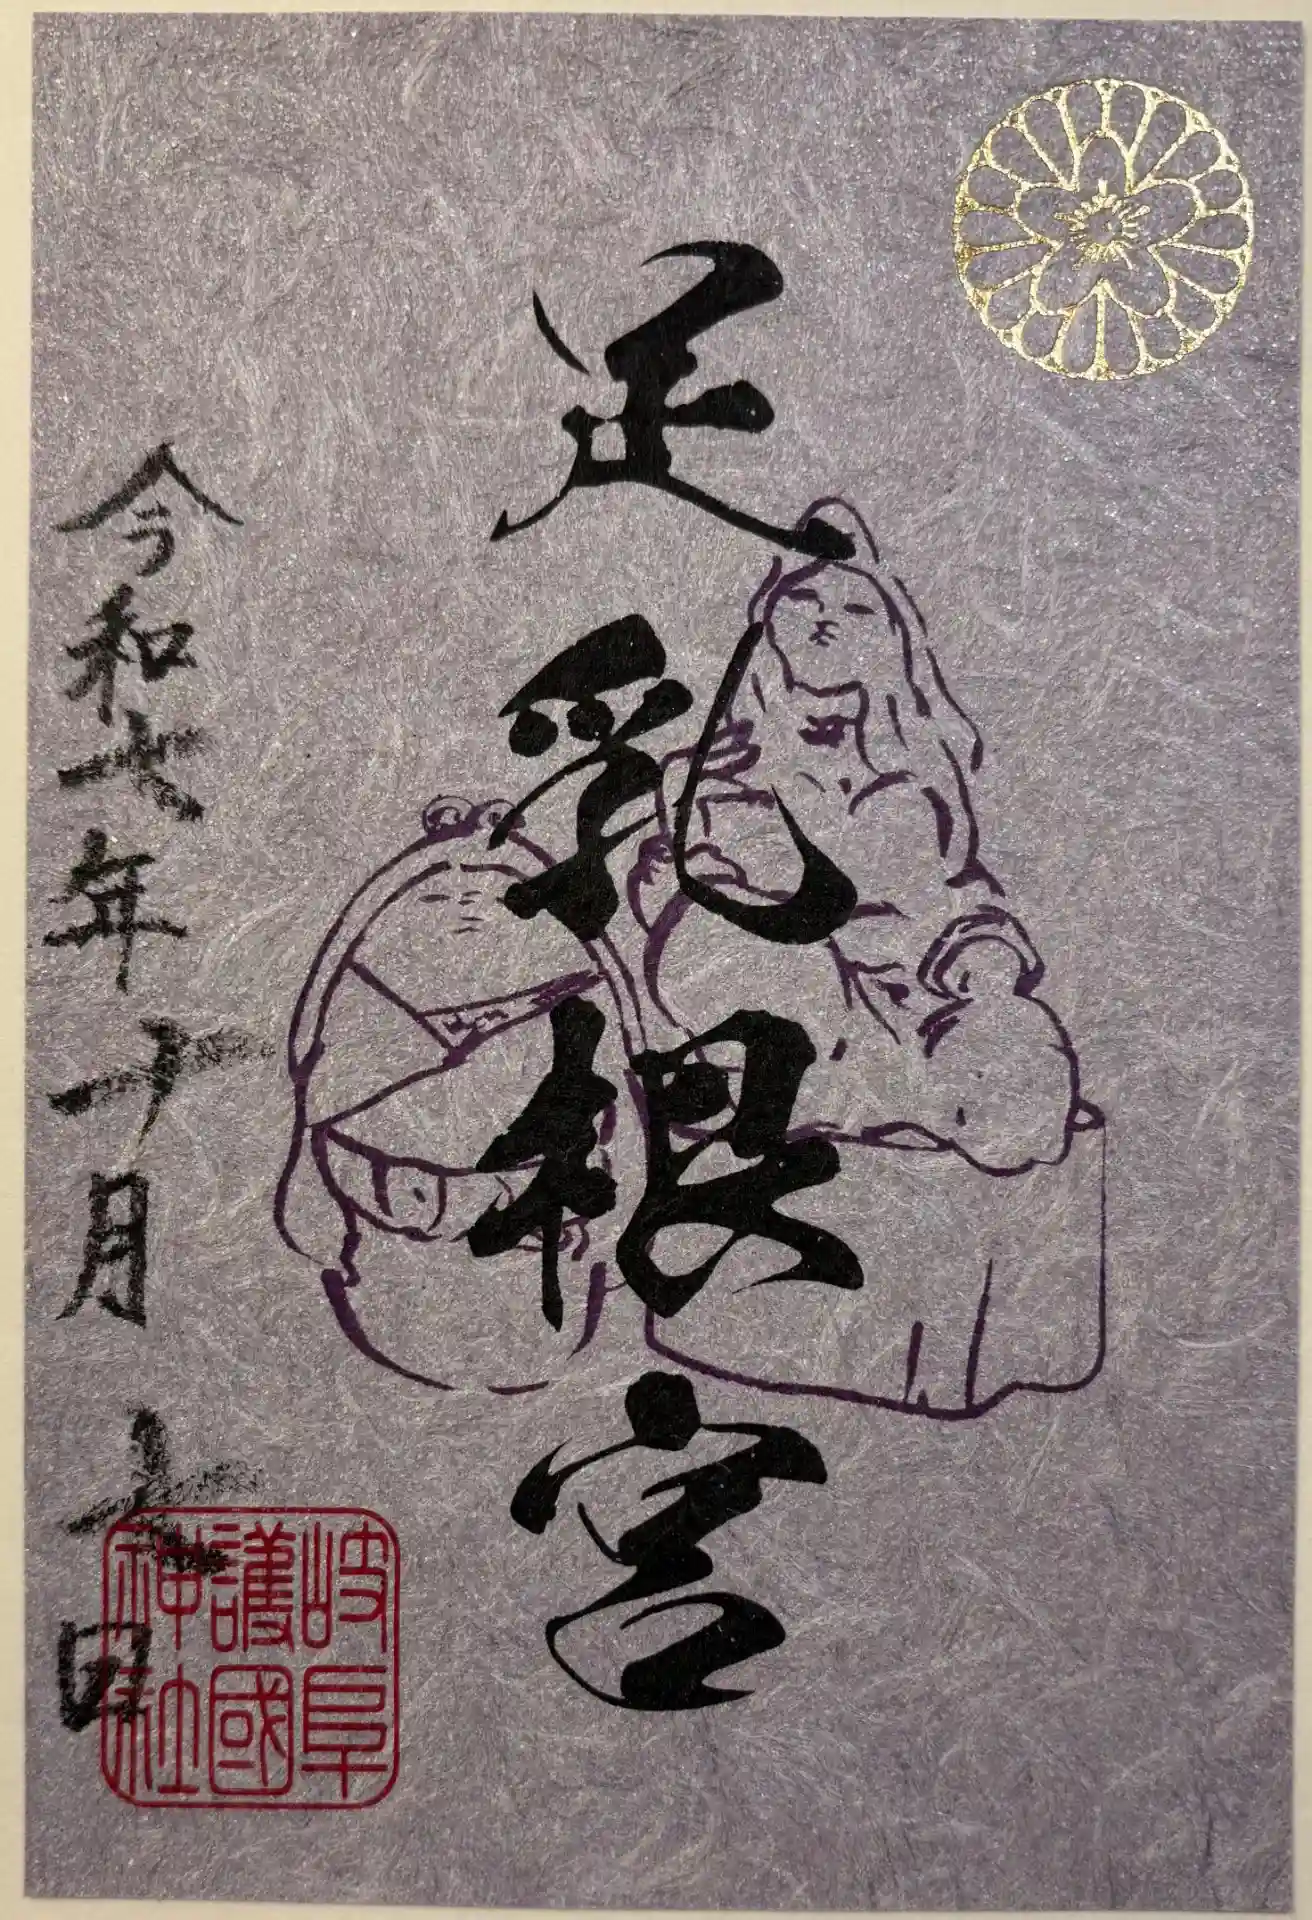 足乳根宮
令和六年十月六日
岐阜
護國
神社